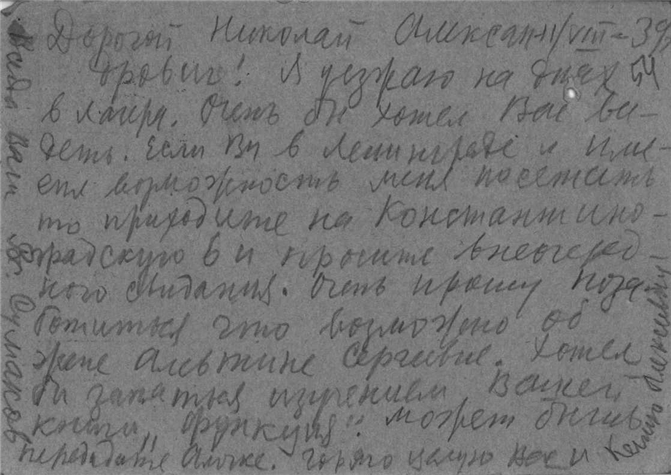 Дорогой Николай Алексан- 11/VIII-39
дрович! Я уезжаю на днях
в лагерь. Очень бы хотел Вас ви-
деть. Если Вы в Ленинграде и име-
ете возможность меня посетить
то приходите на Константино-
градскую 6 и просите внеочеред-
ного свидания. Очень прошу поза-
ботиться что возможно об
жене Алевтине Сергеевне. Хотел
бы заняться изучением Вашей
книги „Функция“. Может быть
передадите Алючке. Горячо целую Вас и
Ксению Алексеевну.
Всегда Ваш